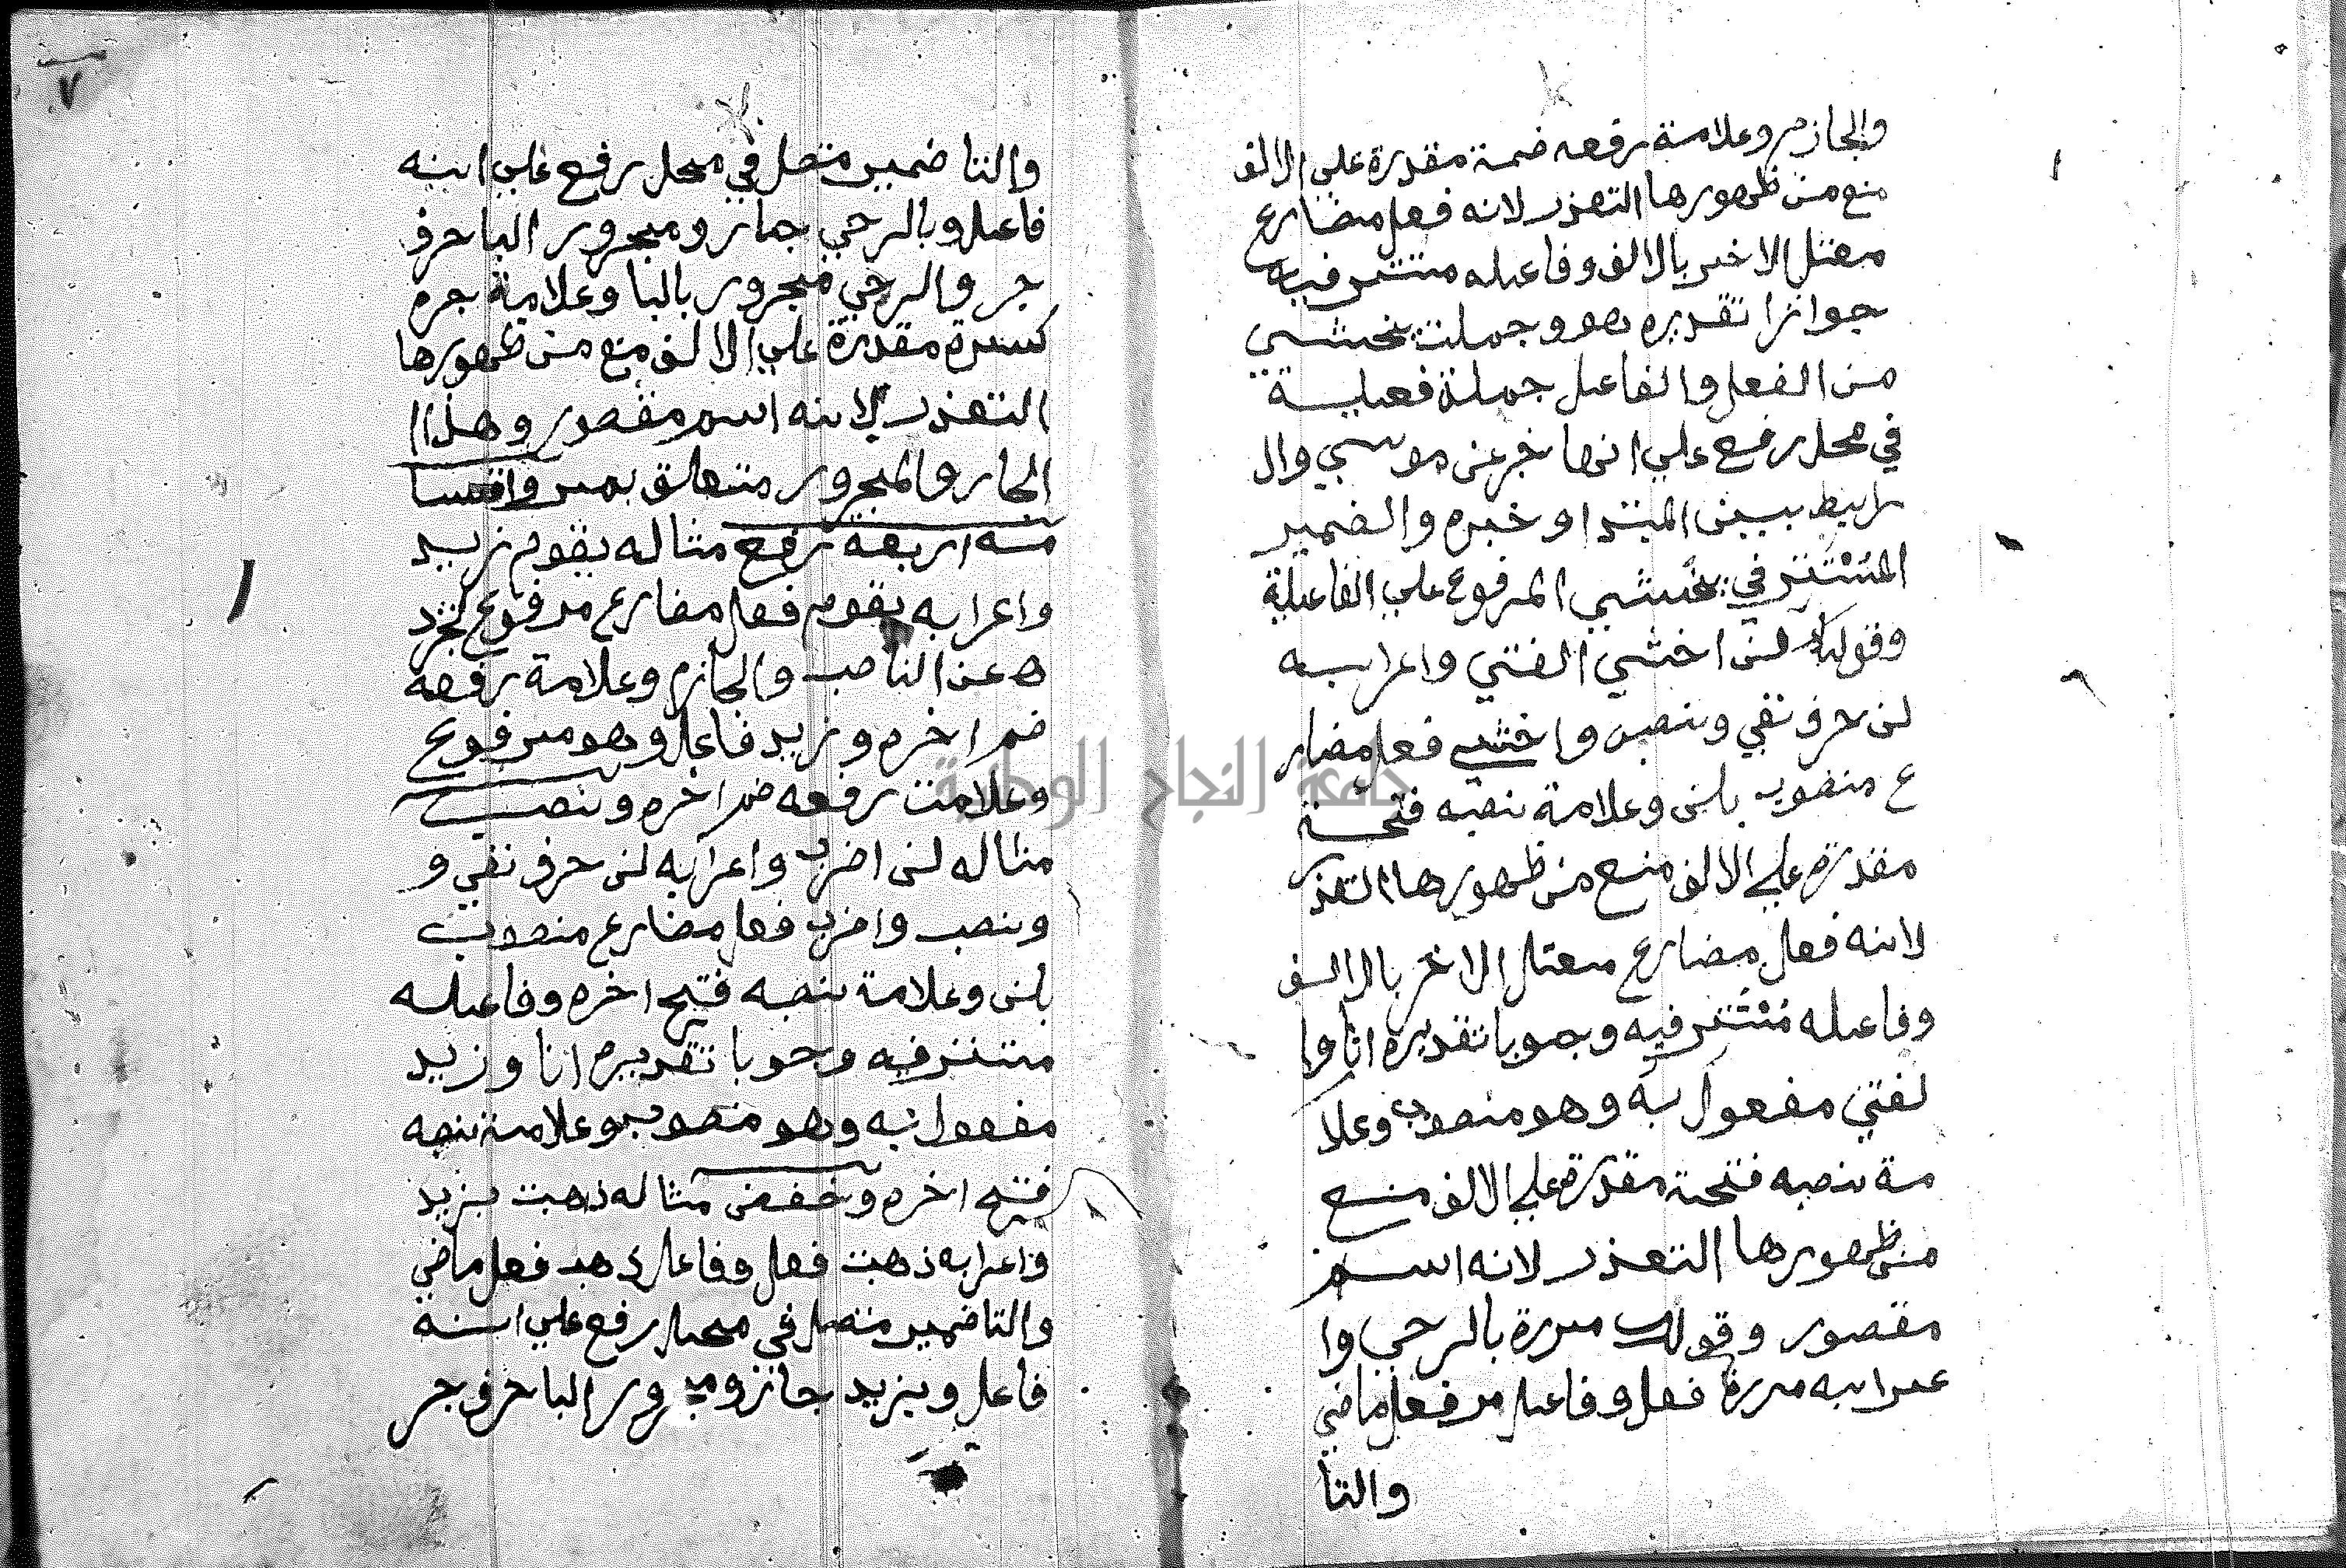 والجازم وعلامة رفعه ضمة مقدرة علي الالف
منع من ظهورها التعذر لانه فعل مضارع
معتل الاخر بالالف وفاعله مستتر فيه
جوازا تقديره هو وجملت يخشي
من الفعل والفاعل جملة فعلية
في محل رفع علي انها خبر عن موسي وال
رابط بين المبتدا وخبره والضمير
المستتر في يخشي المرفوع علي الفاعلية
وقولك لن اخشي الفتي واعرابه
لن حرف نفي ونصب واخشي فعل مضار
ع منصوب بلن وعلامة نصبه فتحة
مقدرة علي الالف منع من ظهورها التعذر
لانه فعل مضارع معتل الاخر بالالف
وفاعله مستتر فيه وجوبا تقديره انا وا
لفتي مفعول به وهو منصوب وعلا
مة نصبه فتحة مقدرة علي الالف منع
من ظهورها التعذر لانه اسم
مقصور وقولك مررة بالرحي وا
عرابه مررة فعل وفاعل مر فعل ماضي
والتا
٧
والتا ضمير متصل في محل رفع علي انه
فاعل وبالرحي جار ومجرور البا حرف
جر والرحي مجرور بالبا وعلامة جره
كسرة مقدرة علي الالف منع من ظهورها
التعذر لانه اسم مقصور وهذا ا
الجار والمجرور متعلق بمر واقسا
مه اربعة رفع مثاله يقوم زيد
واعرابه يقوم فعل مضارع مرفوع لتجرد
ه عن الناصب والجازم وعلامة رفعه
ضم اخره وزيد فاعل وهو مرفوع
وعلامت رفعه ضم اخره ونصب
مثاله لن اضرب واعرابه لن حرف نفي و
ونصب واضرب فعل مضارع منصوب
بلن وعلامة نصبه فتح اخره وفاعله
مستتر فيه وجوبا تقديره انا وزيد
مفعول به وهو منصوب وعلامة نصبه
فتح اخره وخفض مثاله ذهبت بزيد
واعرابه ذهبت فعل وفاعل ذهب فعل ماضي
والتا ضمير متصل في محل رفع علي انه
فاعل وبزيد جار ومجرور البا حرف جر
جامعة النجاح الوطنية